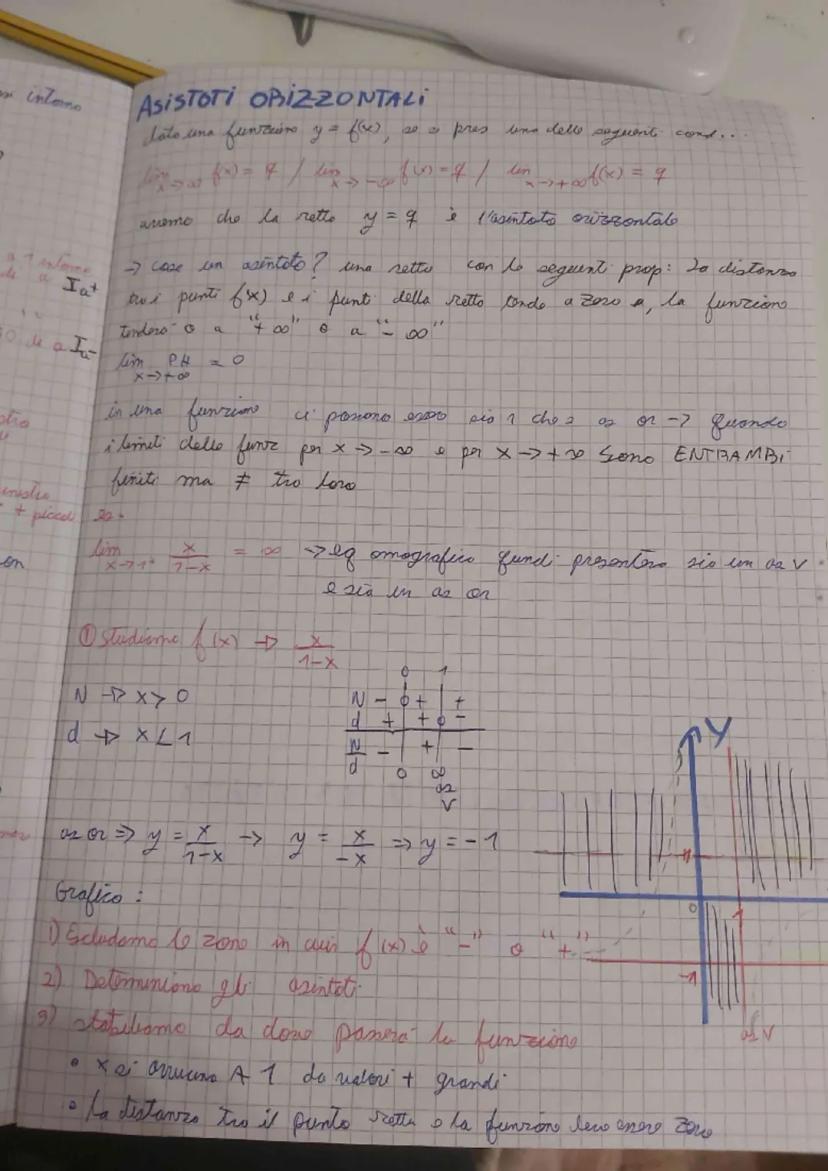 ASISTOTI ORIZZONTALI
data una funzione y = f(x), se è pres una delle seguenti cond...
lim x→∞ f(x) = q / lim x→-∞ f(x) = q / lim x→+∞ f(x) = q
avremo che la retta y = q è l'asintoto orizzontale
→ cose un asintoto? una retta con le seguenti prop: la distanza
tra i punti f(x) e i punti della retta tende a zero e, la funzione
tenderà o a "+∞" o a "-∞"
lim x→+∞ PH = 0
in una funzione ci possono essere sia 1 che 2 as or → quando
i limiti delle funz per x→-∞ e per x→+∞ sono ENTRAMBI
finiti ma ≠ tra loro
es.
lim x→1+ x/1-x = ∞ → eq omografica quindi presenterà sia un as V
e sia un as or
① studiamo f(x) → x/1-x
N → x > 0
d → x < 1
0 1
N - 0 + +
d + + 0 -
N/d - + -
0 ∞
as
V
as or ⇒ y = x/1-x → y = x/-x ⇒ y = -1
Y
0
1
-1
as V
Grafico:
1) Escludiamo le zone in cui f(x) è "-" o "+"
2) Determiniamo gli asintoti
3) stabiliamo da dove passerà la funzione
• x si avvicina A 1 da valori + grandi
• La distanza tra il punto retta e la funzione deve essere zero
intorno
a 1 intorno
de a Ia+
de a Ia-
+ piccol